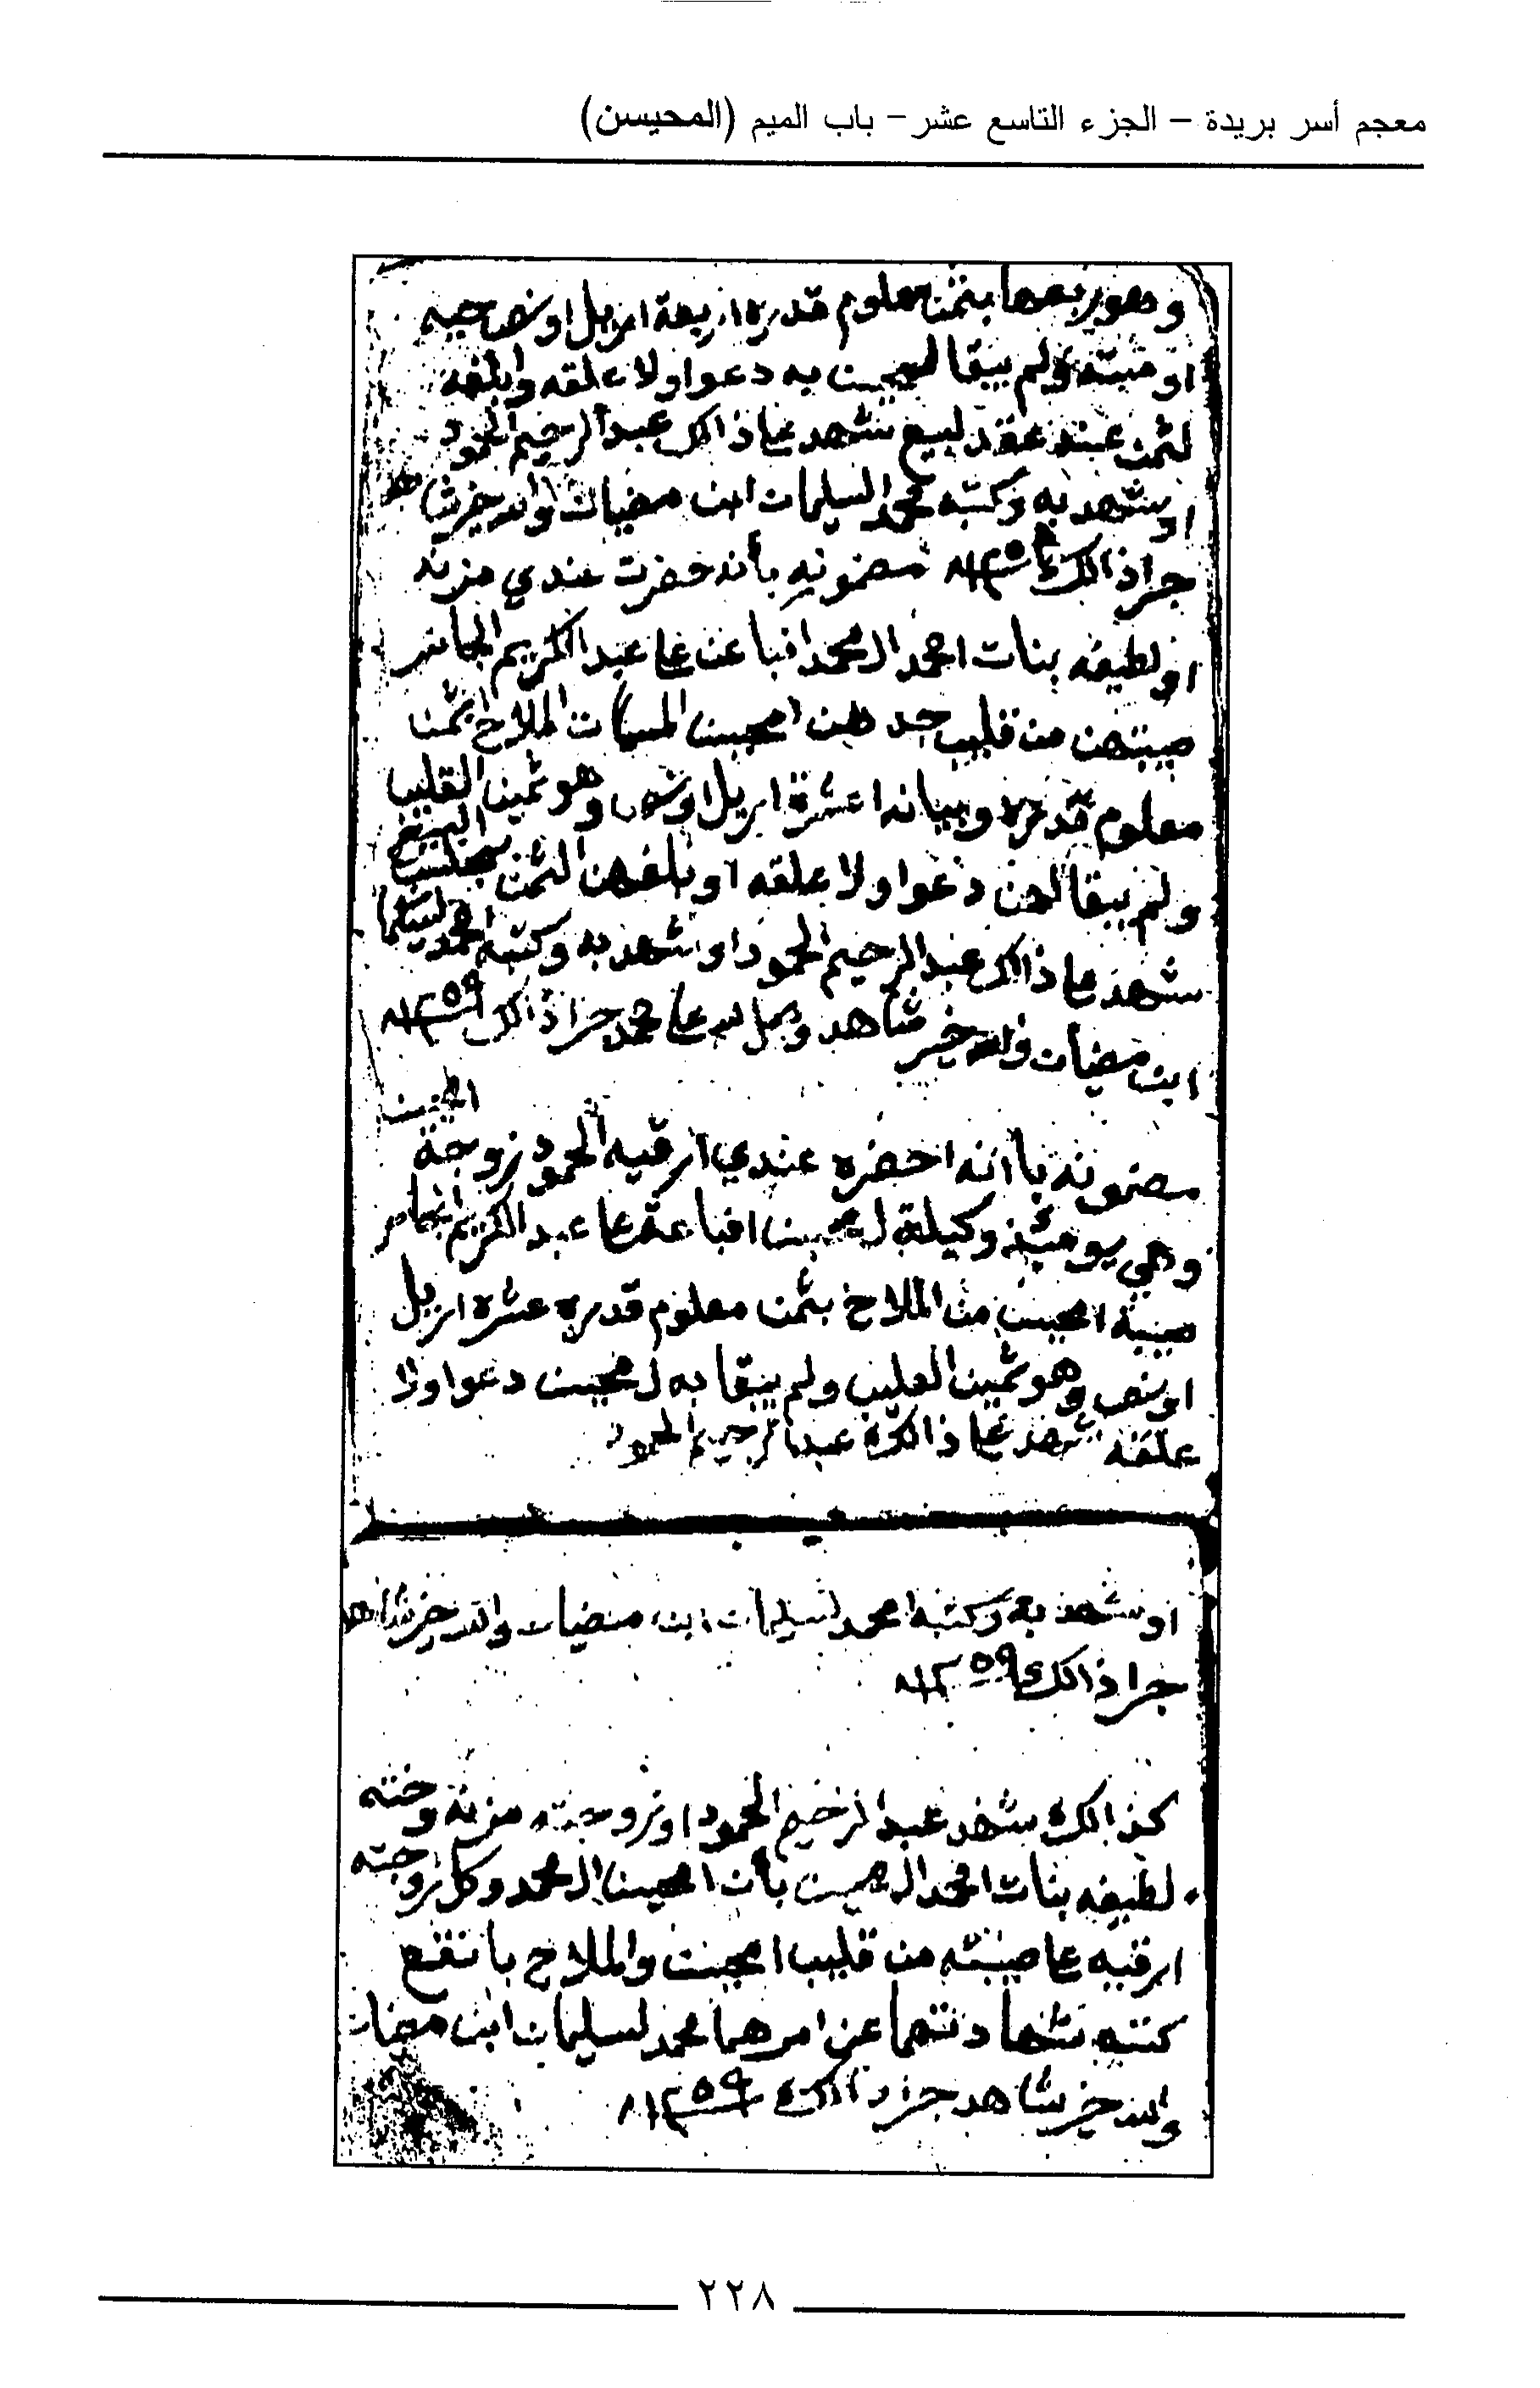 معجم أسر بريدة – الجزء التاسع عشر – باب الميم (المحيسن)
وهو ربعها بثمنا معلوم قدره اربعة اريل اونص
او مبيته ولم يبقا لمحيسن به دعوا ولا علقه وابلغه
لثمن عند عقد لبيع شهد عا ذالك عبدالرحيم الحمود
اوشهد به وكتبه محمد السليمان ابن مضيان والله خير شاهد
جرا ذالك مضمونه بأنه حضرت عندي مزنه
اولطيفه بنات احمد ال محمد افباعن عا عبدالكريم الجاسر
صيبتهن من قليب جدهن امحيسن الملاح بثمنا
معلوم قدره وبيانه اعشرة اريل اونص وهو ثمين القليب
ولم يبقا لهن دعوا ولا علقه او بلغهن الثمن بمجلس البيع
شهد عا ذالك عبدالرحيم الحمود اوشهد به وكتبه امحمد لسليما
ابن مضيان والله خير شاهد محمد جرا ذالك ١٣٥٩
امحيسن
مضمونه بأنه احضره عندي ارقيه الحمود زوجة
وهي يومئذ وكيلة لمحيسن افباعة عا عبدالكريم الجاسر
صيبة امحيسن من الملاح بثمن معلوم قدره عشره اريل
اونص وهو ثمين القليب ولم يبقا به لمحيسن دعوا ولا
علقه شهد عا ذالك عبدالرحيم الحمود
اوشهد به وكتبه امحمد لسليمان ابن مضيان والله خير شاهد
جرا ذالك ١٣٥٩
كذالك شهد عبدالرحيم الحمود اوزوجته مزنه وخته
لطيفه بنات امحمد ال محيسن بأن امحيسن ال محمد وكل زوجته
ارقيه عا صيبته من قليب امحيسن والملاح
كتبه شهادتهما عن امرهما محمد لسليمان ابن مضيان
والله خير شاهد جرا ذالك ١٣٥٩
٢٢٨